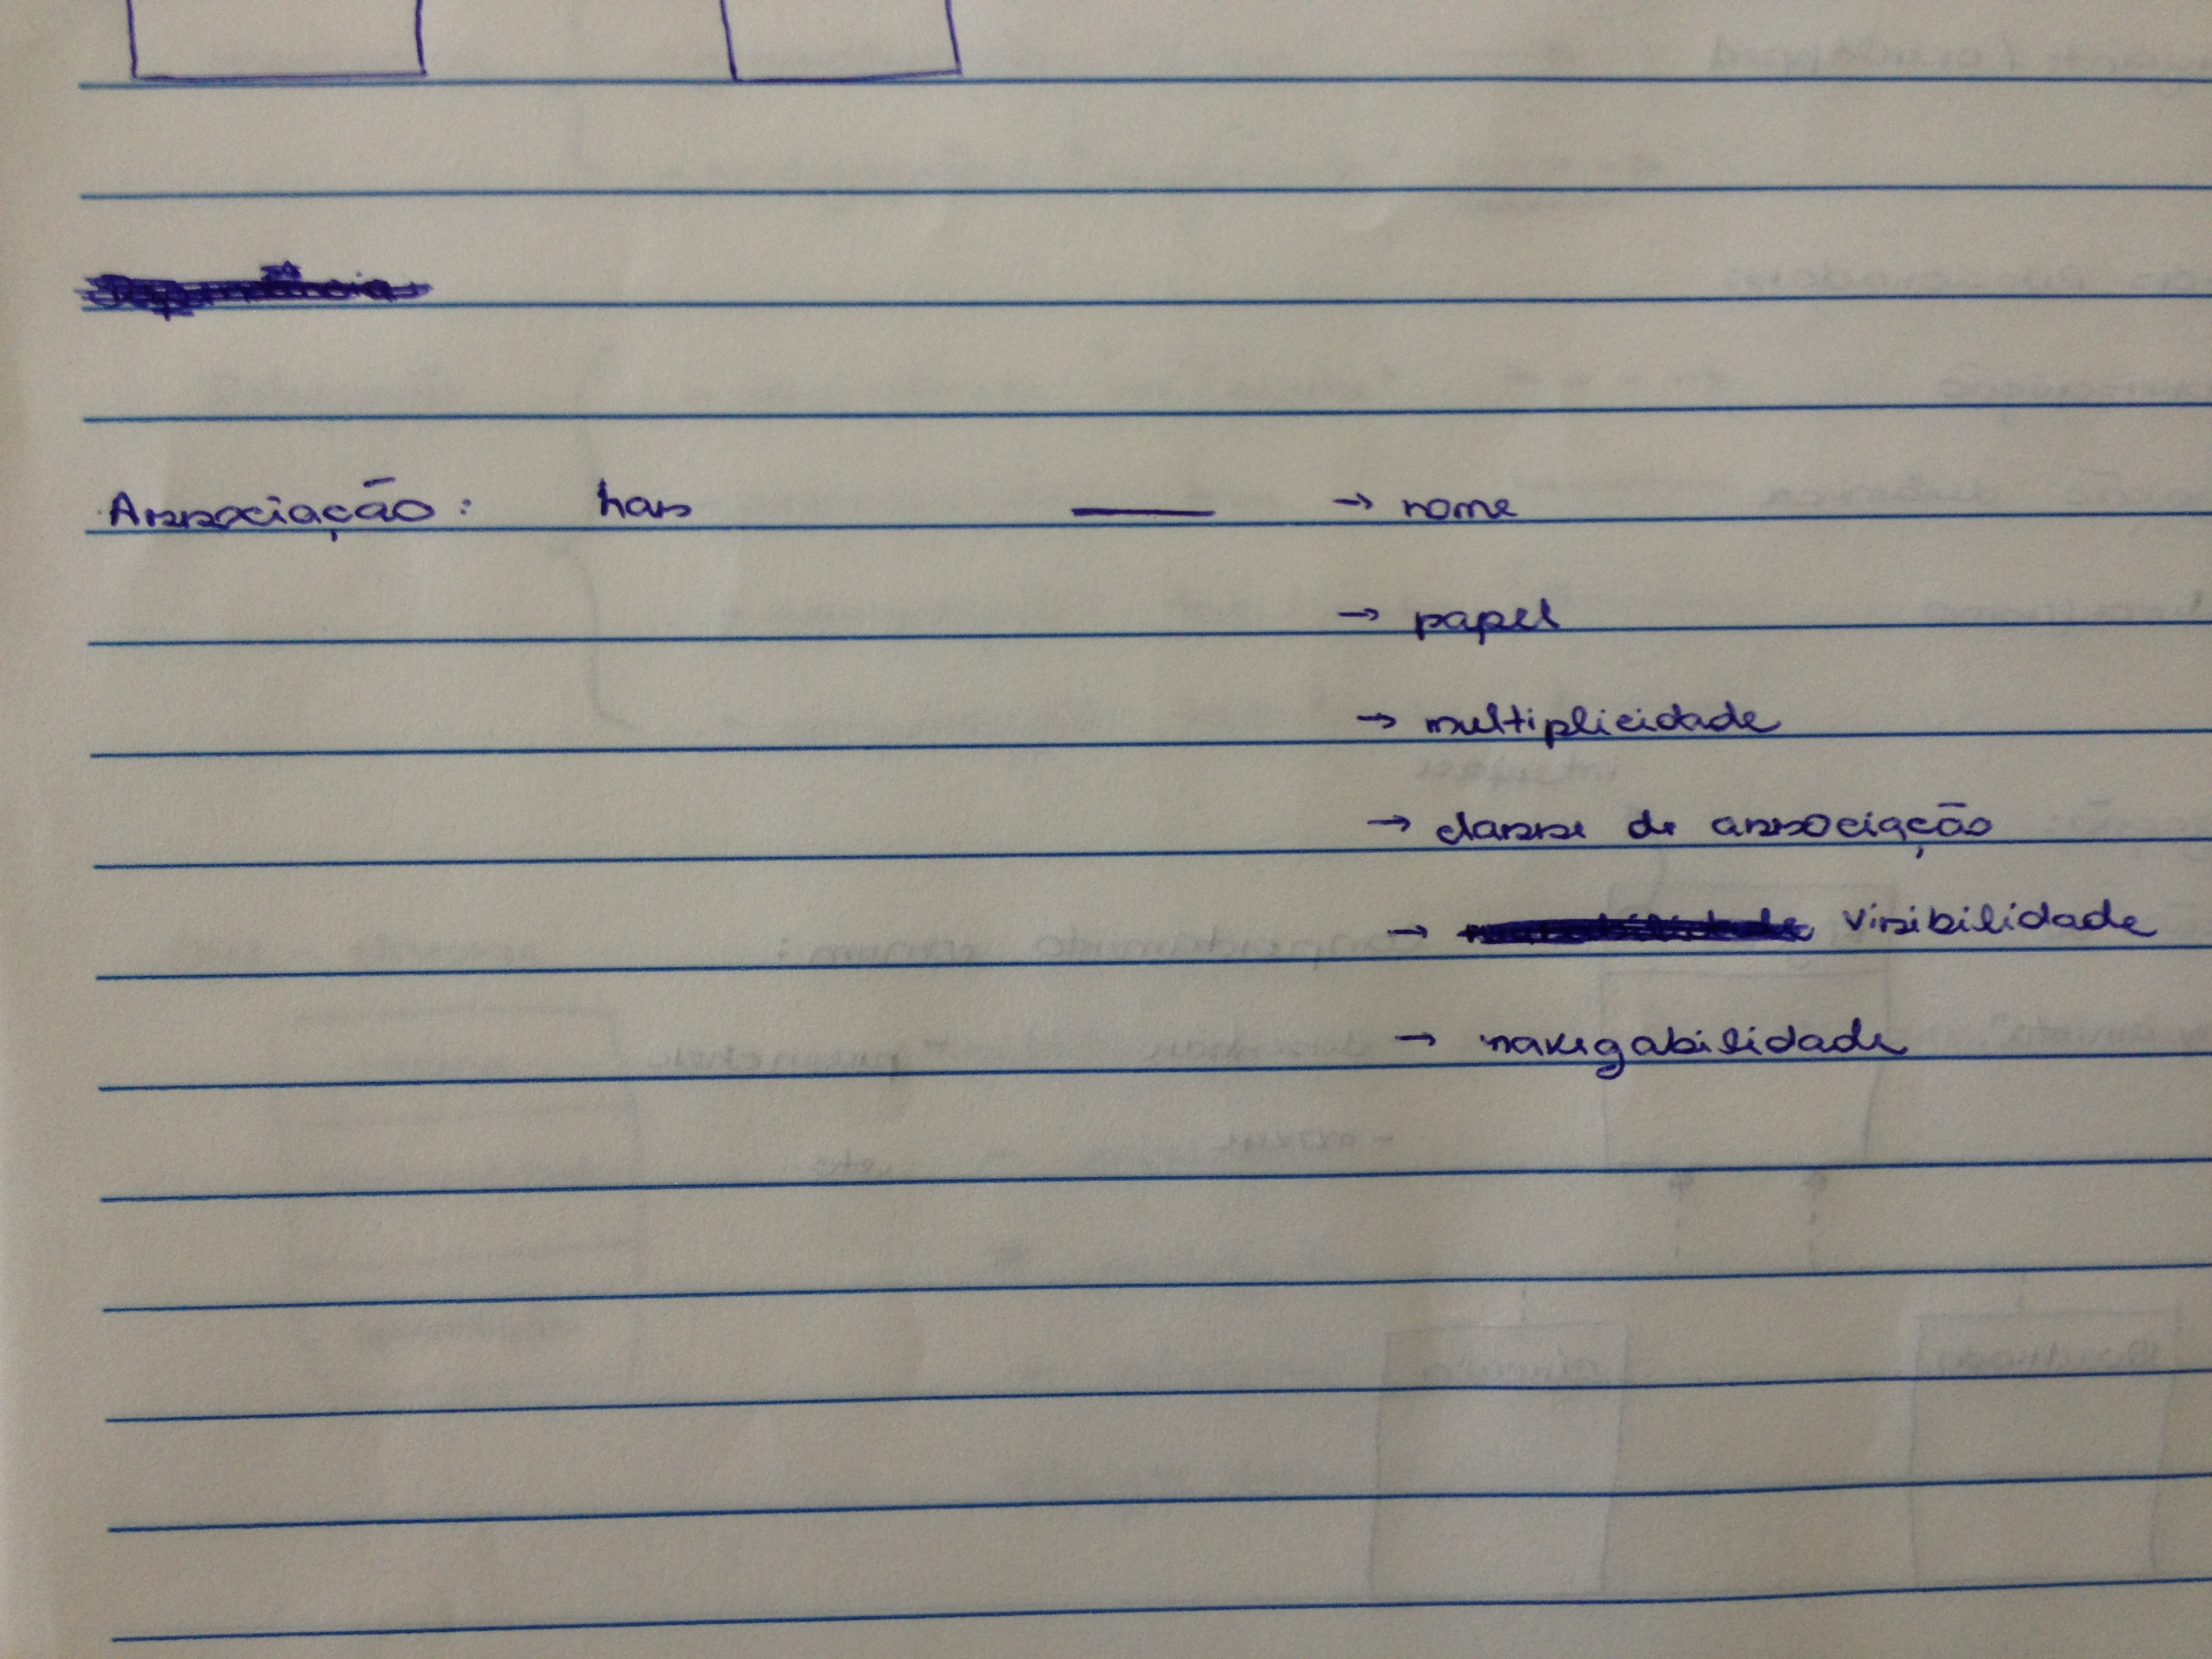 Associação: has — → nome
→ papel
→ multiplicidade
→ classe de associação
→ visibilidade
→ navegabilidade